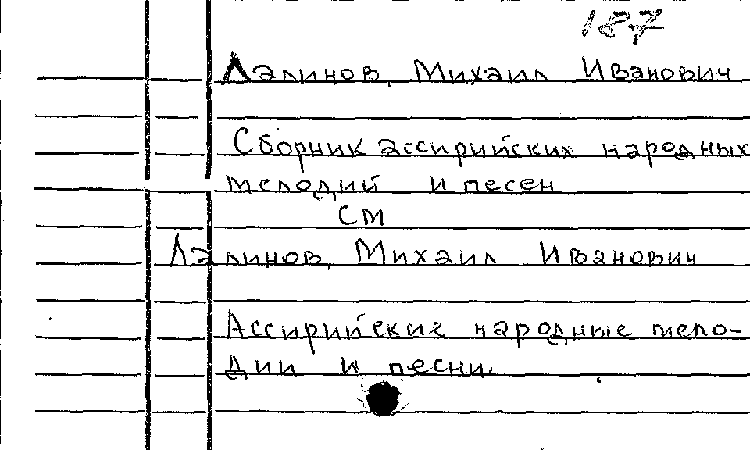 187
Лалинов, Михаил Иванович
Сборник ассирийских народных
мелодий и песен
См
Лалинов, Михаил Иванович
Ассирийские народные мело-
дии и песни.